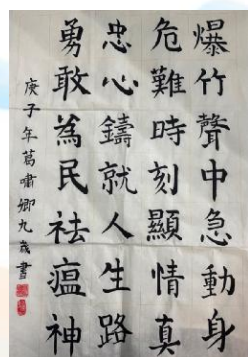 爆竹聲中急動身
危難時刻顯情真
忠心鑄就人生路
勇敢為民祛瘟神
庚子年葛嘯卿九歲書